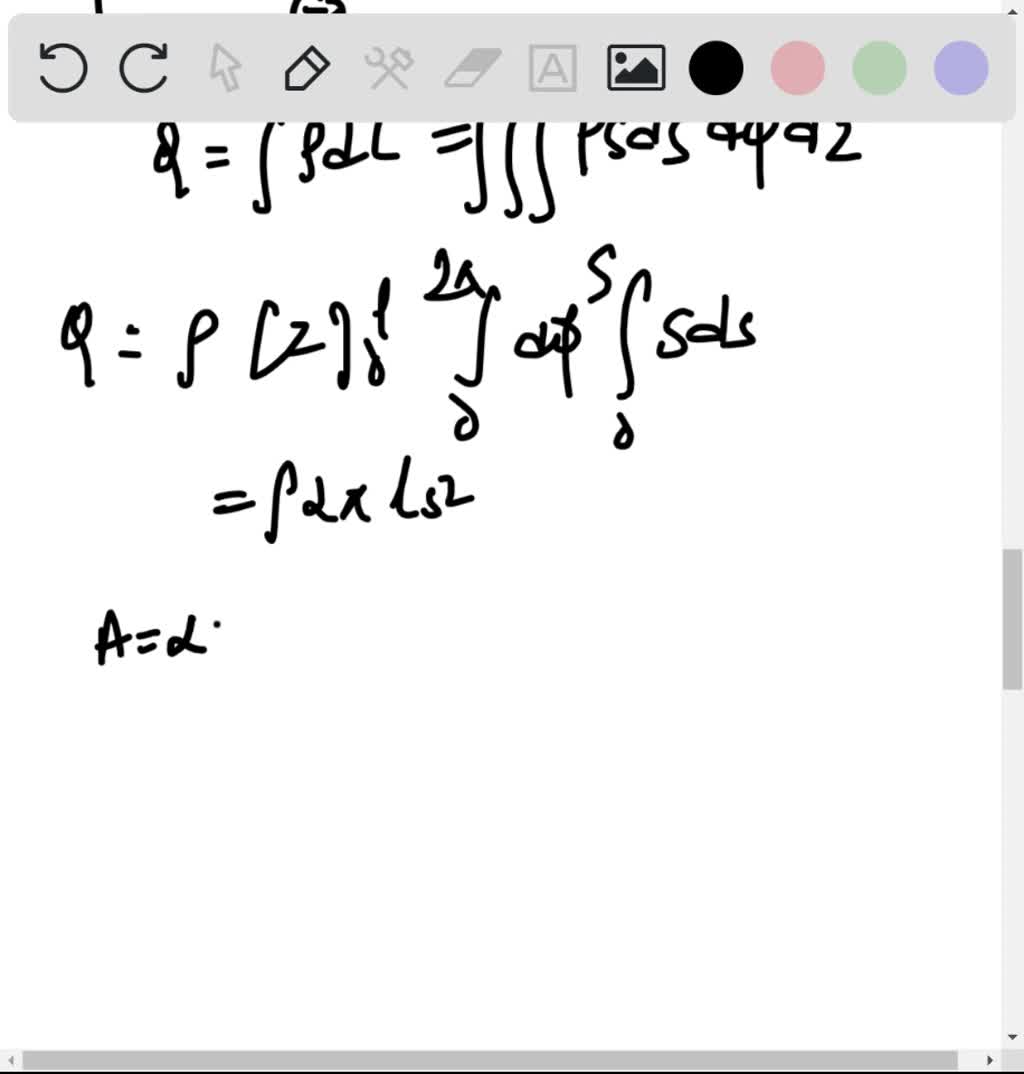 Q = ∫ ρdτ = ∫∫∫ ρsds dφdz
Q = ρ [z]₀ˡ ∫₀^{2π} dφ ∫₀^{s} sds
= ρ2π ls²
A = 2